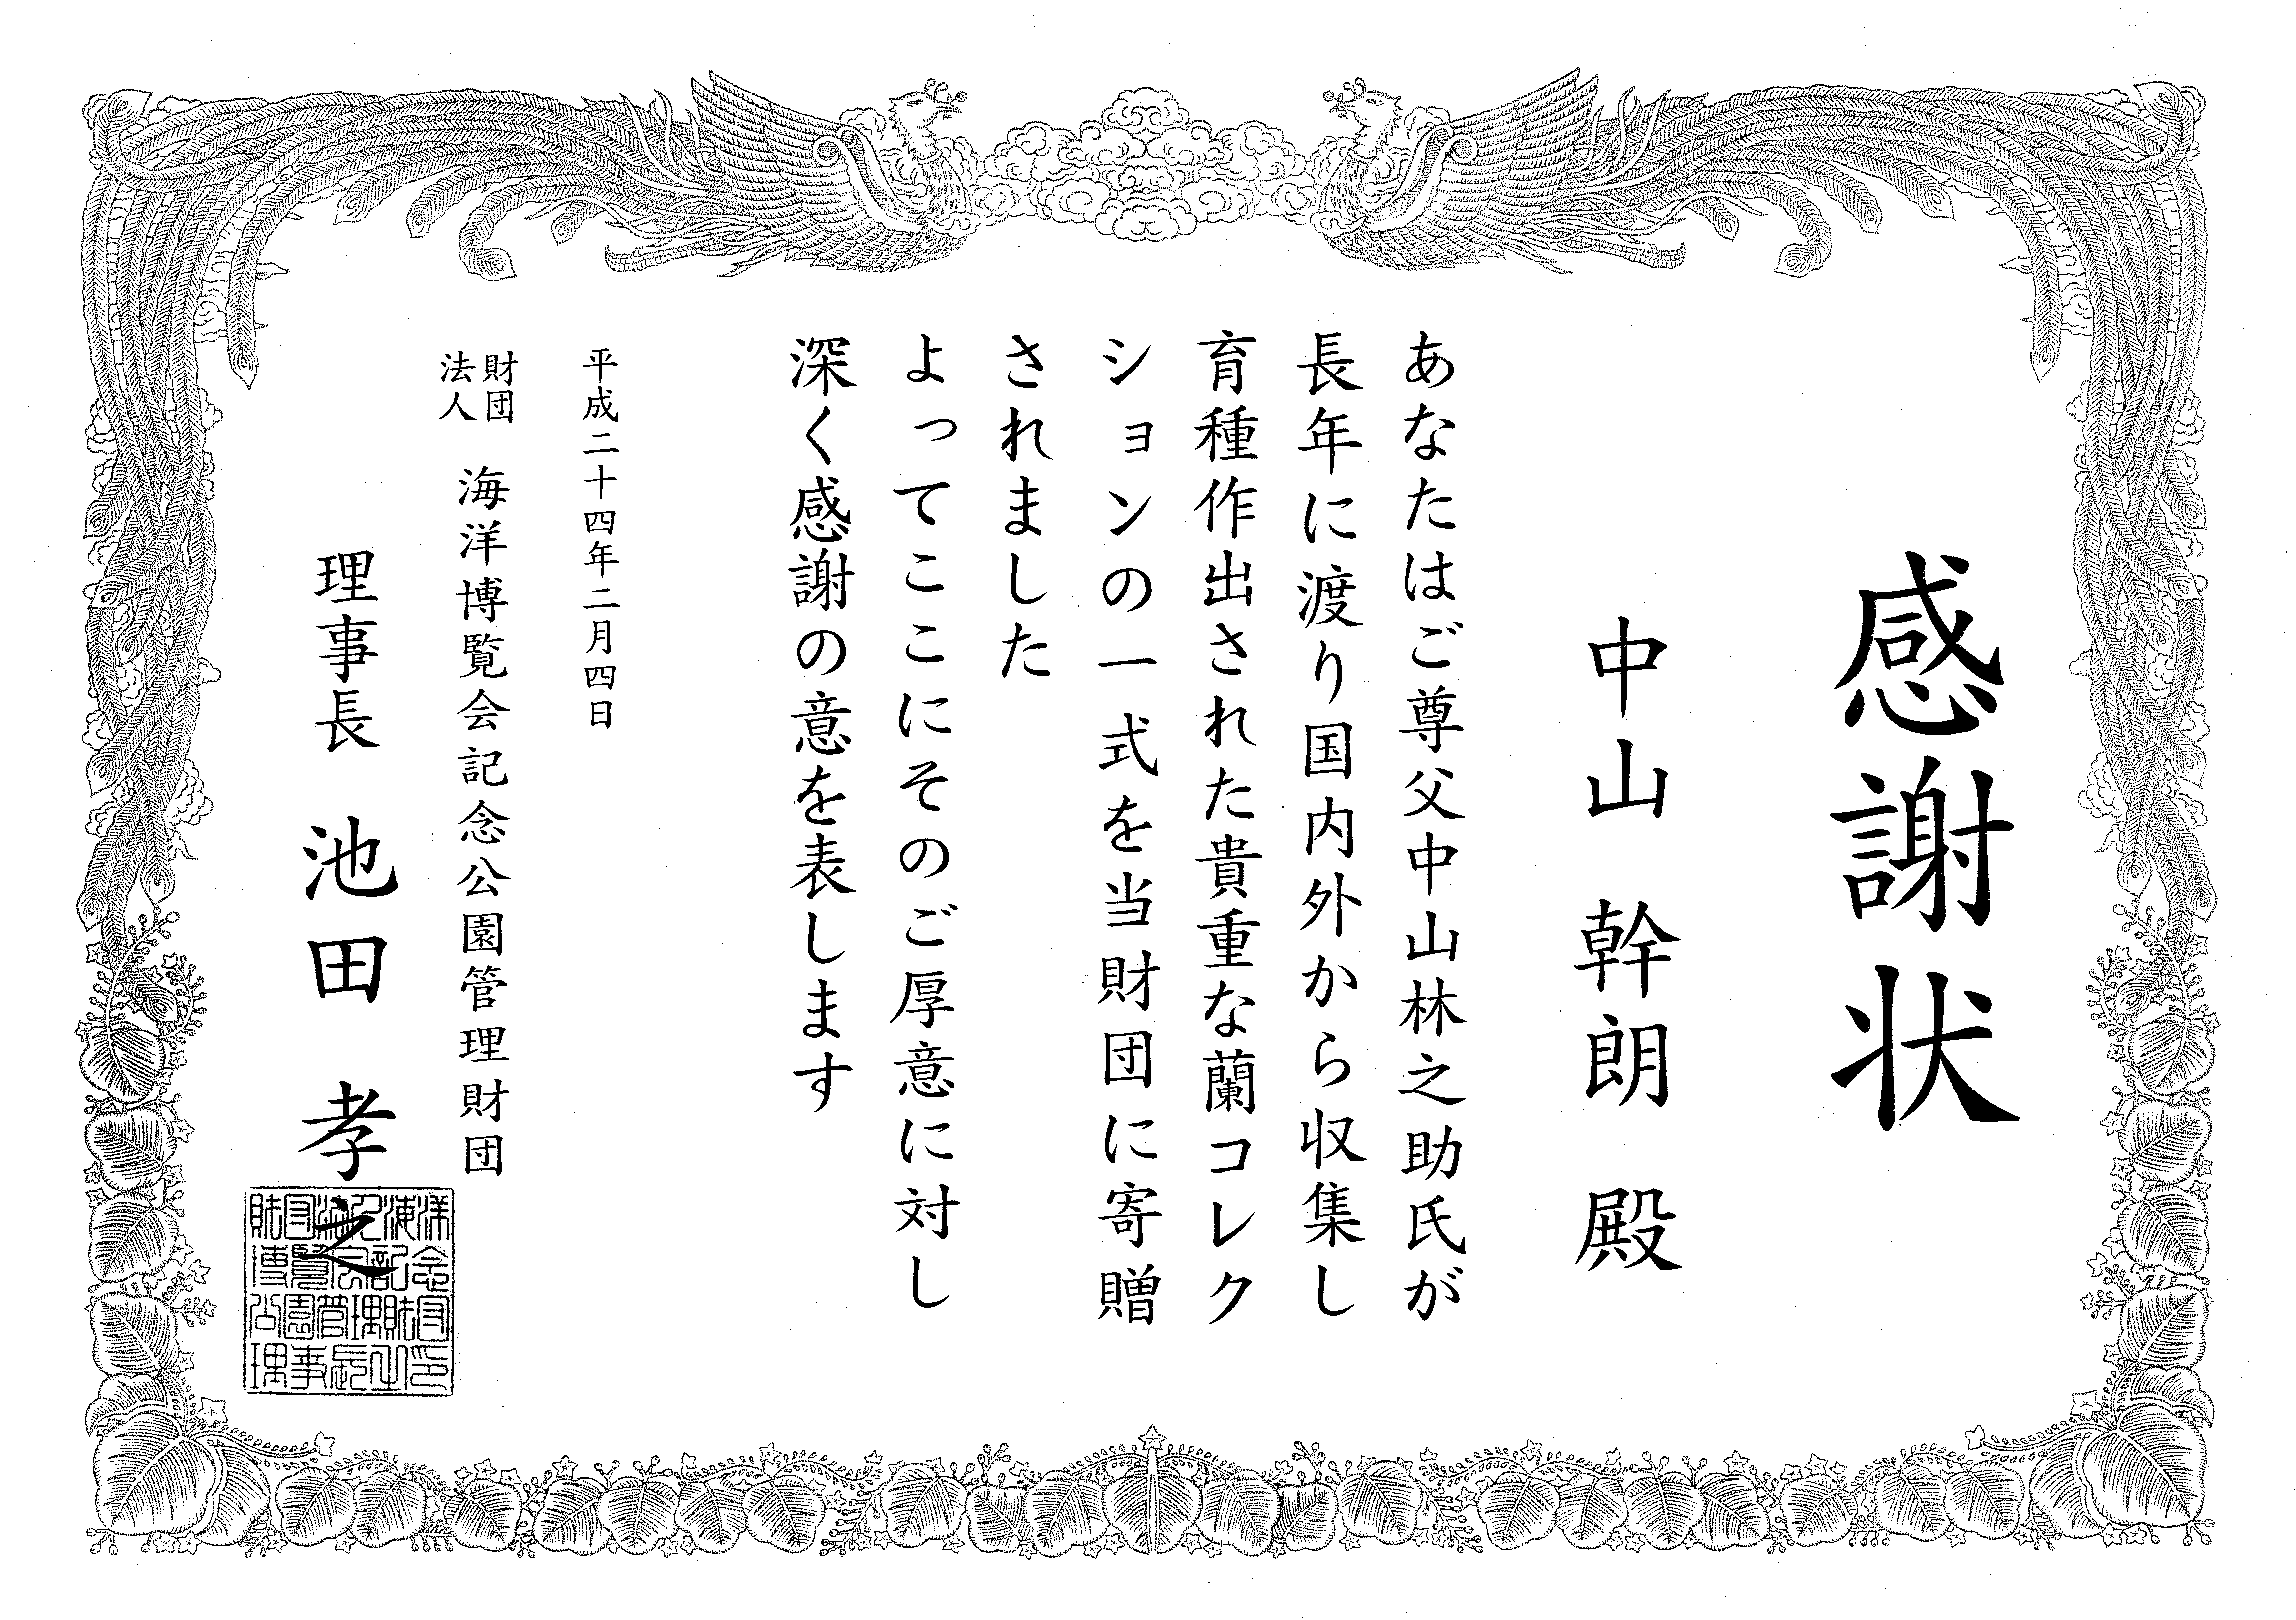 感謝状
中山 幹朗 殿
あなたはご尊父中山林之助氏が
長年に渡り国内外から収集し
育種作出された貴重な蘭コレク
ションの一式を当財団に寄贈
されました
よってここにそのご厚意に対し
深く感謝の意を表します
平成二十四年二月四日
財団法人 海洋博覧会記念公園管理財団
理事長 池田 孝之